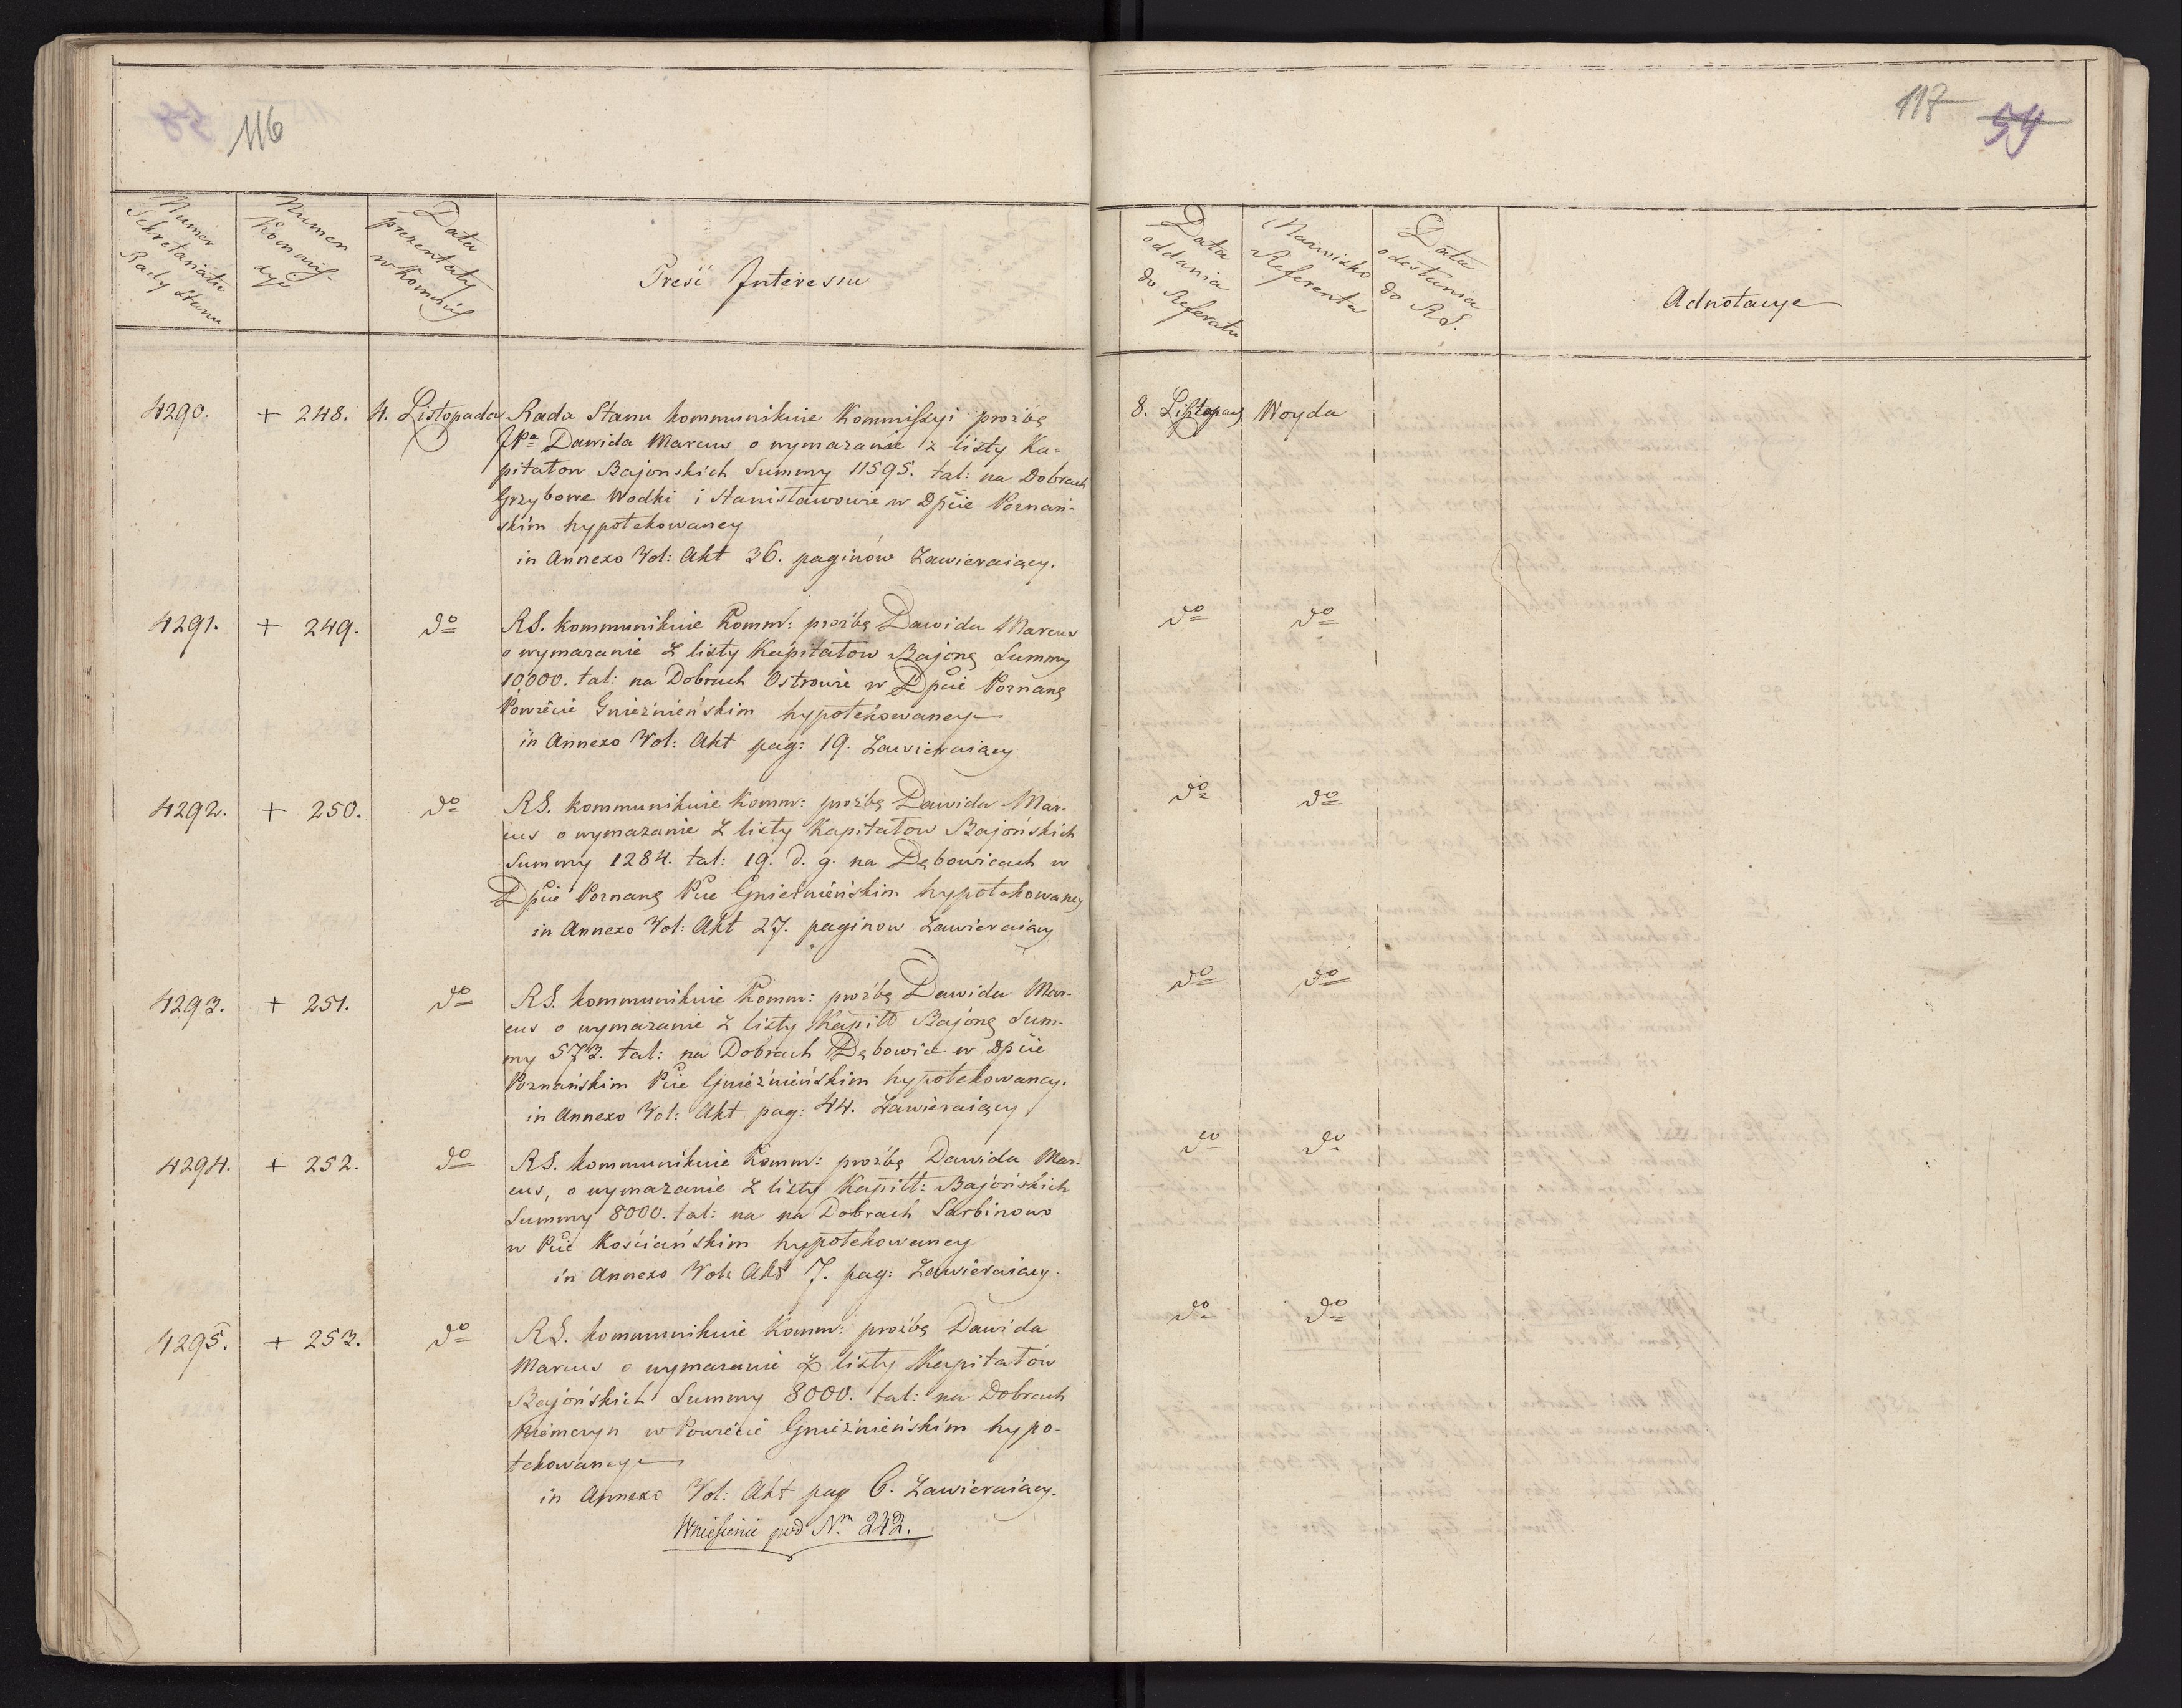 116
Numer Sekretariatu Rady Stanu
Numer Kommissyi
Data prezentaty w Kommis
Treść Interessu
4290. + 248. 4. Listopada Rada Stanu kommunikuie Kommissyi prozbę
JPa Dawida Marcus o wymazanie z listy Ka-
pitałow Bajonskich Summy 11595. tal: na Dobrach
Grzybowe Wodki i Stanisławowie w Dpcie Poznań-
skim hypotekowaney
in Annexo Vol: Akt 36. paginów Zawieraiący.
4291. + 249. do RS. kommunikuie Komm: prozbę Dawida Marcus
o wymazanie z listy Kapitałow Bajong Summy
10,000. tal: na Dobrach Ostrowie w Dpcie Poznang
Powiecie Gnieźnieńskim hypotekowaney
in Annexo Vol: Akt pag: 19. Zawieraiący
4292. + 250. do RS. kommunikuie Komm: prozbę Dawida Mar-
cus o wymazanie z listy Kapitałow Bajońskich
Summy 1284. tal: 19. d. g. na Dębowicach w
Dpcie Poznang Pcie Gnieźnieńskim hypotekowaney
in Annexo Vol: Akt 27. paginow Zawieraiący
4293. + 251. do RS. kommunikuie Komm: prozbę Dawida Mar-
cus o wymazanie z listy Kapitł Bajong Sum-
my 573. tal: na Dobrach Dębowice w Dpcie
Poznańskim Pcie Gnieźnieńskim hypotekowaney.
in Annexo Vol: Akt pag: 44. Zawieraiący
4294. + 252. do RS. kommunikuie Komm: prozbę Dawida Mar-
cus, o wymazanie z listy Kapitł: Bajońskich
Summy 8000. tal: na na Dobrach Sarbinowo
w Pcie Kościańskim hypotekowaney
in Annexo Vol: Akt 7. pag: Zawieraiący.
4295. + 253. do RS. kommunikuie Komm: prozbę Dawida
Marcus o wymazanie z listy Kapitałów
Bajońskich Summy 8000. tal: na Dobrach
w Powiecie Gnieźnieńskim hypo-
tekowaney
in Annexo Vol: Akt pag 6. Zawieraiący.
Wniesienie pod Nm 242.
117 59
Data oddania do Referatu
Nazwisko Referenta
Data odesłania do RS.
Adnotacye
8. Listopad Woyda
do do
do do
do do
do do
do do